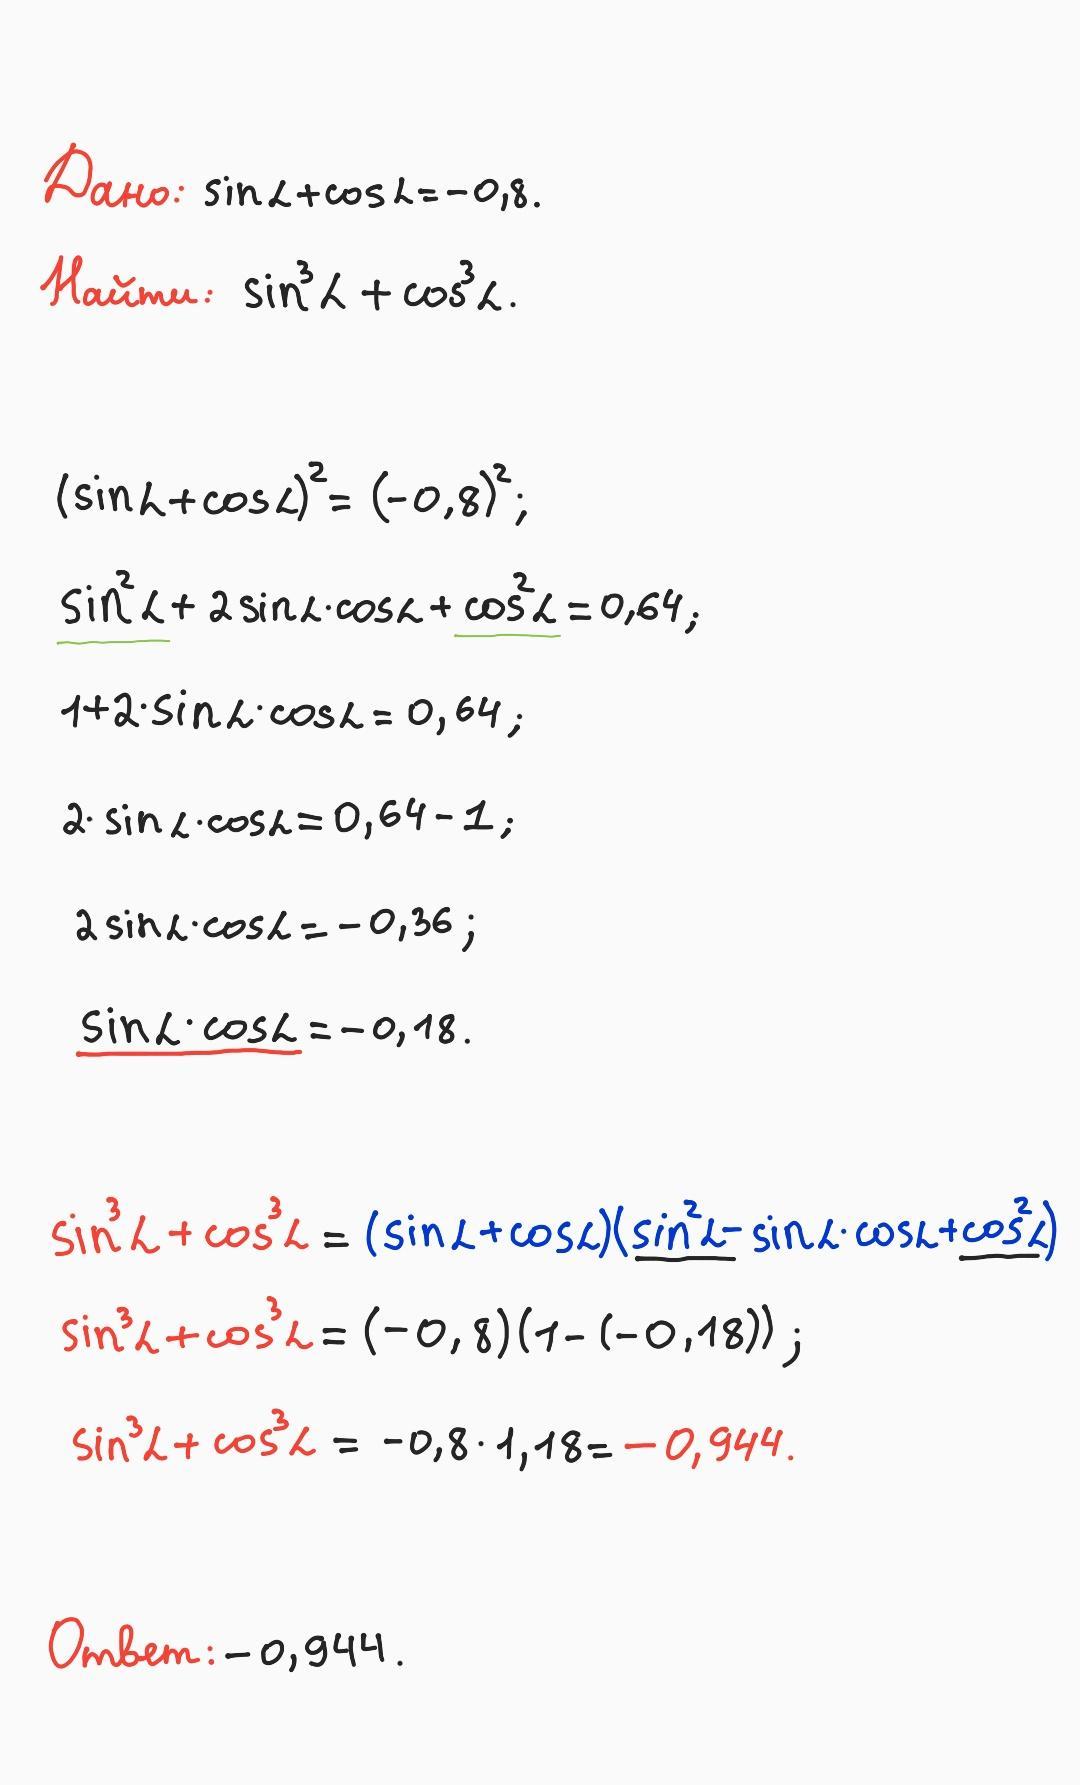 Дано: sin α + cos α = -0,8.
Найти: sin³ α + cos³ α.
(sin α + cos α)² = (-0,8)²;
sin² α + 2 sin α · cos α + cos² α = 0,64;
1+2 · sin α · cos α = 0,64;
2 · sin α · cos α = 0,64 - 1;
2 sin α · cos α = -0,36;
sin α · cos α = -0,18.
sin³ α + cos³ α = (sin α + cos α)(sin² α - sin α · cos α + cos² α)
sin³ α + cos³ α = (-0,8)(1-(-0,18));
sin³ α + cos³ α = -0,8 · 1,18 = -0,944.
Ответ: -0,944.